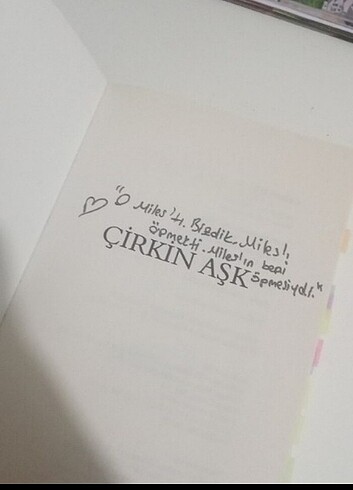 "O Miles'tı. Bizdik. Miles'ı
öpmekti. Miles'ın beni
öpmesiydi."
ÇİRKİN AŞK